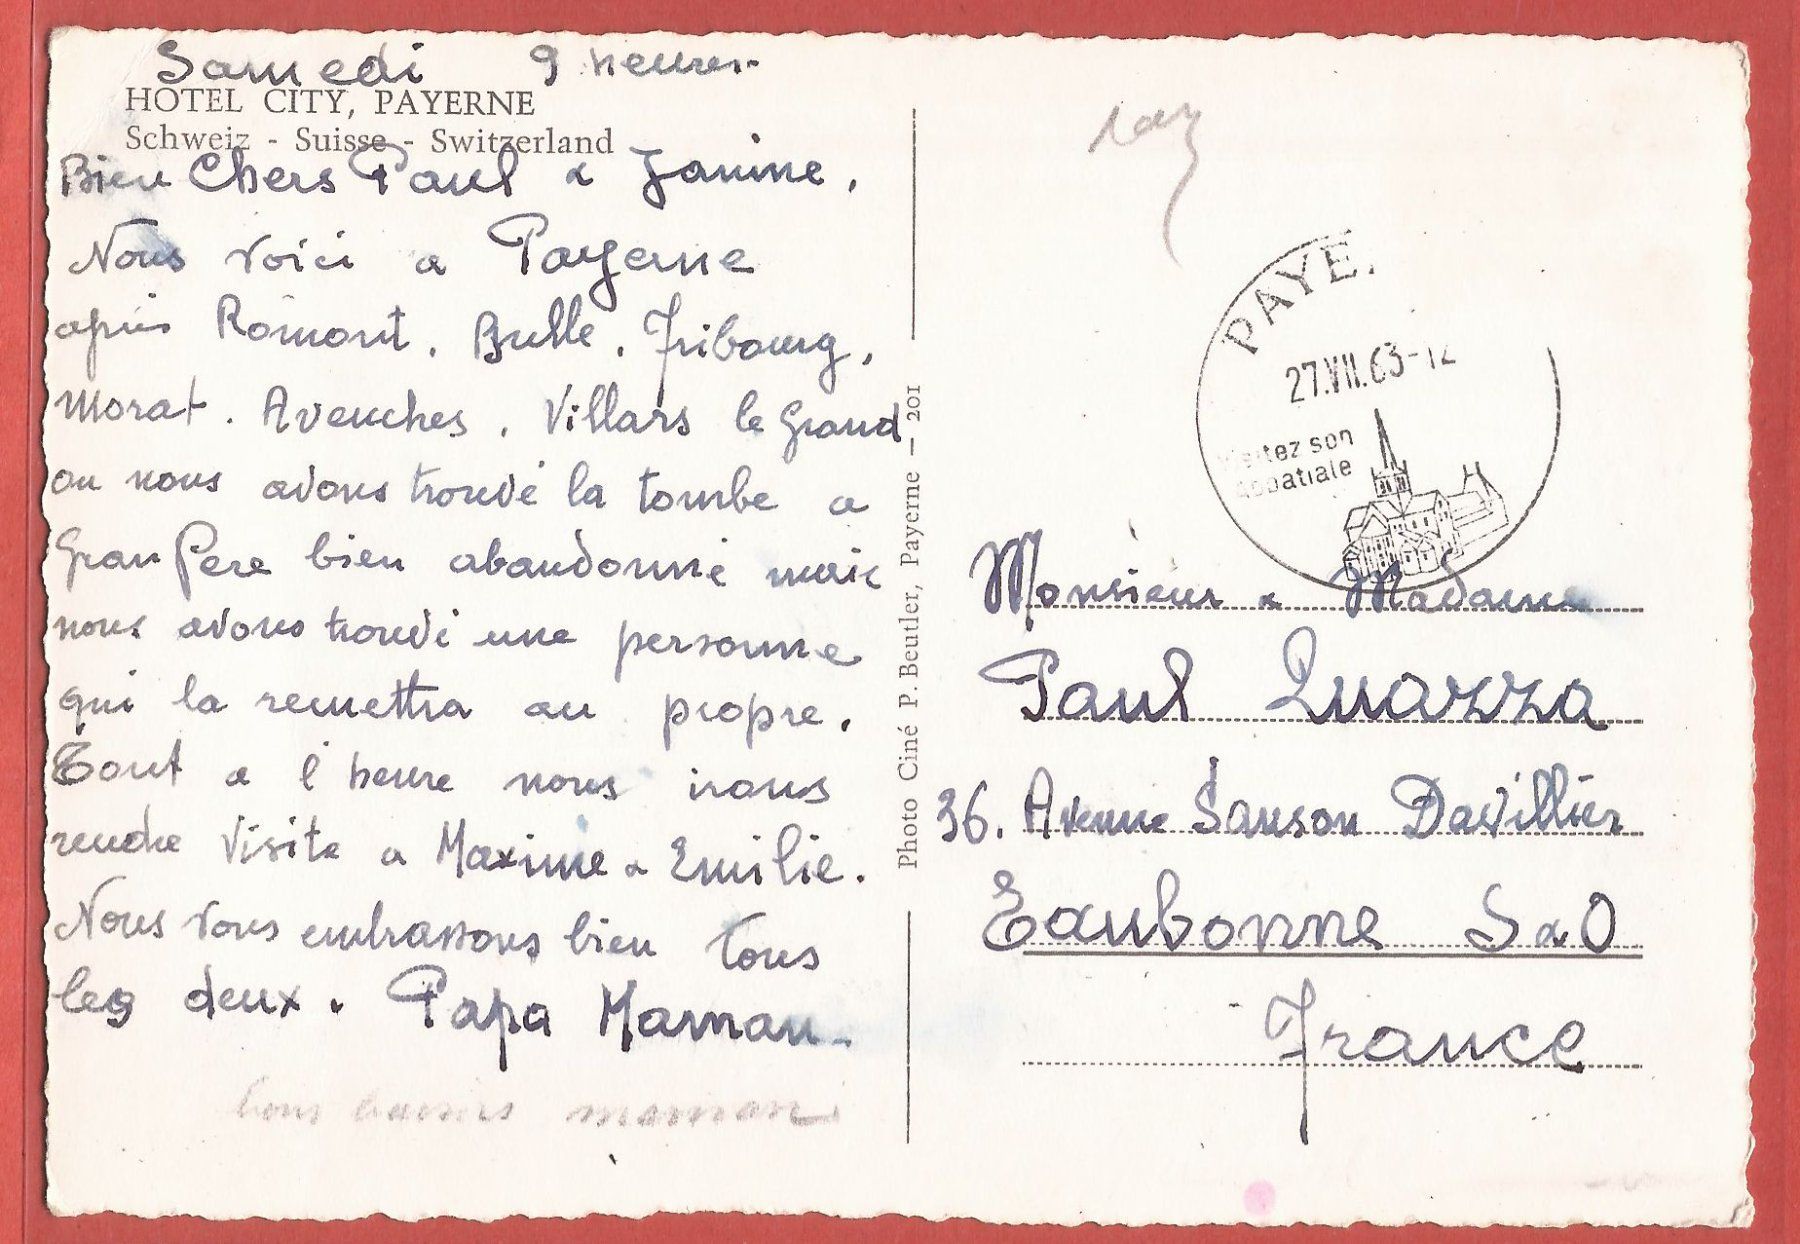 Samedi 9 heures
HOTEL CITY, PAYERNE
Schweiz - Suisse - Switzerland
Bien Chers Paul & Janine,
Nous voici a Payerne
apres Romont, Bulle, Fribourg,
Morat, Avenches, Villars le Grand
ou nous avons trouvé la tombe a
Gran Pere bien abandonné mais
nous avons trouvé une personne
qui la remettra au propre.
Tout a l'heure nous irons
rendre visite a Maxime & Emilie.
Nous vous embrassons bien tous
les deux. Papa Maman
bons baisers maman
Photo Ciné P. Beutler, Payerne — 201
PAYE
27.VII.63-12
Visitez son
abbatiale
Monsieur & Madame
Paul Quazza
36. Avenue Sanson Davillier
Eaubonne S&O
France